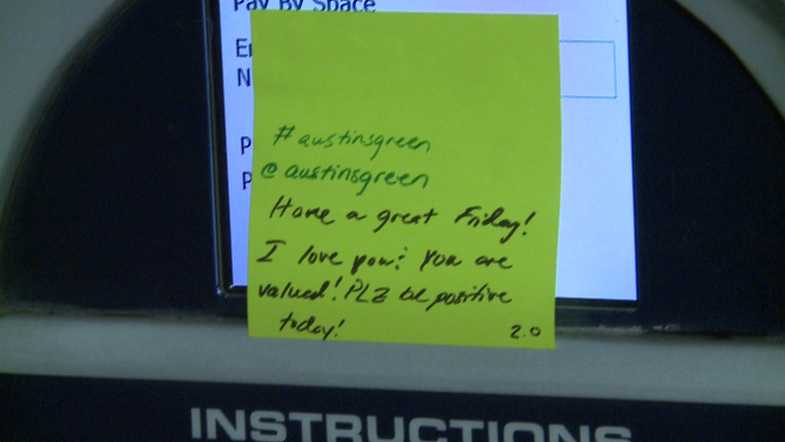 Pay By Space
#austinsgreen
@austinsgreen
Have a great Friday!
I love you! You are
valued! PLZ be positive
today!
2.0
INSTRUCTIONS